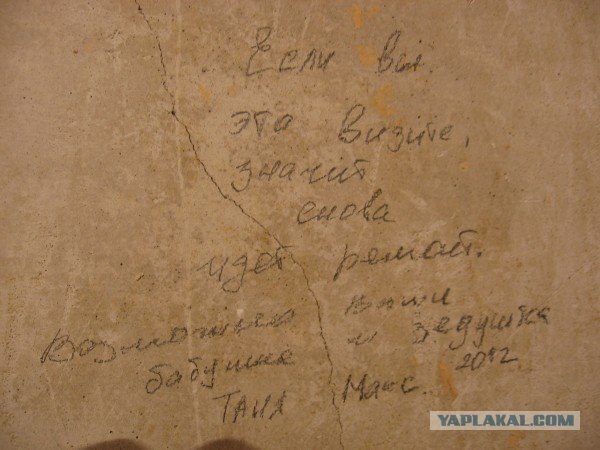 Если вы
это видите,
значит
снова
идёт ремонт.
Возможно ваши
бабушка и дедушка
Таня Макс. 2012
YAPLAKAL.COM